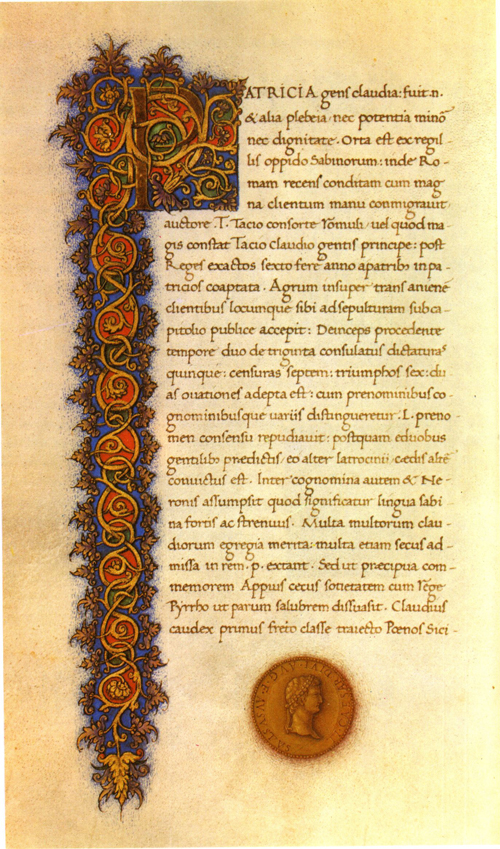 PATRICIA gens claudia: fuit .n.
& alia plebeia nec potentia minõ
nec dignitate. Orta est ex regil-
lis oppido Sabinorum: inde Ro-
mam recens conditam cum mag
na clientum manu conmigravit
auctore .T. Tacio consorte rõmuli, vel quod ma-
gis constat Tacio claudio gentis principe: post
Reges exactos sexto fere anno apatribꝰ in pa-
tricios coaptata. Agrum insuper trans anienẽ
clientibus locumque sibi ad sepulturam sub ca-
pitolio publice accepit: Deinceps procedente
tempore duo de triginta consulatus dictaturas
quinque: censuras septem: triumphos sex: du
as ovationes adepta est: cum prenominibus co-
gnominibusque variis distingueretur .L. preno-
men consensu repudiavit: postquam e duobus
gentilibꝰ prædictis, eo alter latrocinii, cædis alter
convictus est. Inter cognomina autem & Ne-
ronis assumpsit quod significatur lingua sabi-
na fortis ac strenuus. Multa multorum clau-
diorum egregia merita: multa etiam secus ad-
missa in rem .p. extant. Sed ut precipua com-
memorem Appius cecus sotietatem cum rẽge
Pyrrho ut parum salubrem dissuasit. Claudius
caudex primus freto classe traiecto Pœnos Sici-